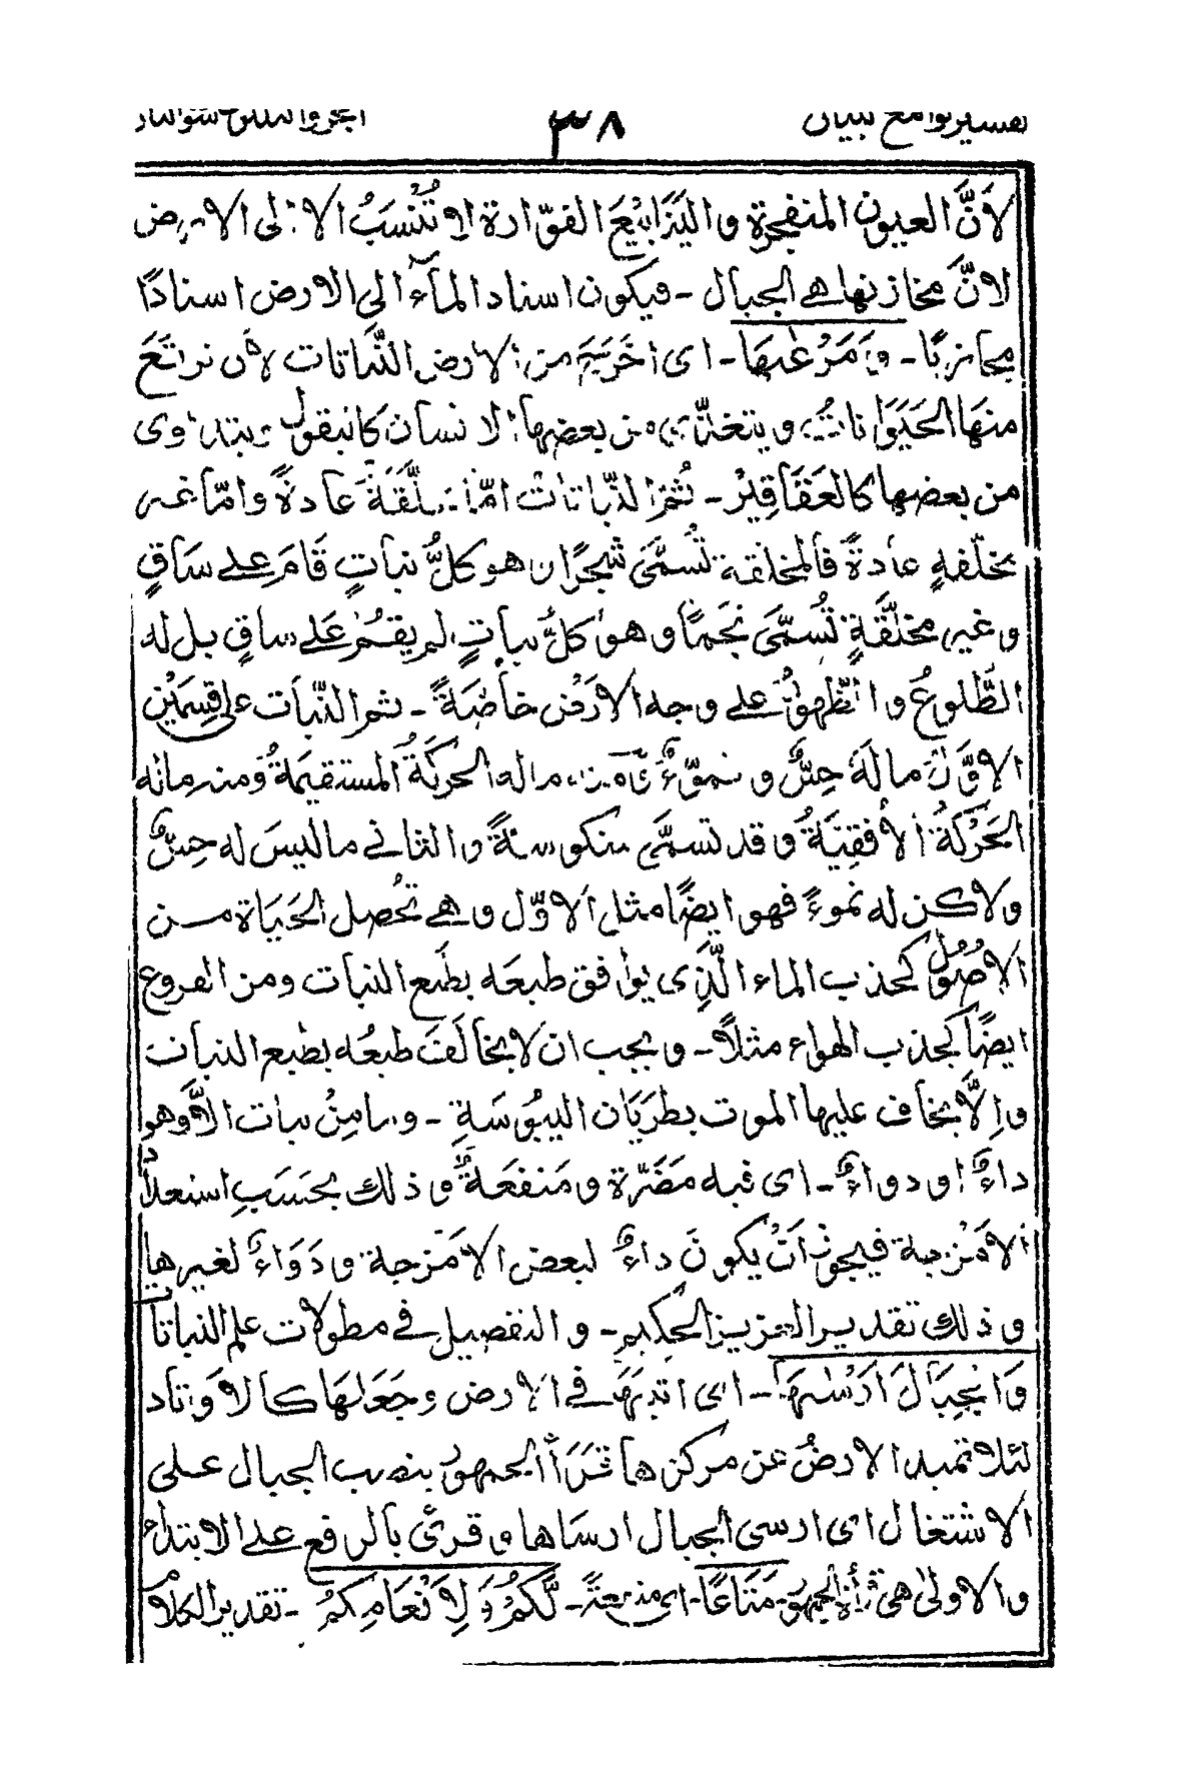 تفسير لوامع البيان ٣٨ الجزؤ الثلثون سورة النازعات
لاَنَّ العيون المنفجرة والينَابيْعَ الفوّارة لا تُنْسَبُ الا الى الارض
لانّ مخازنها هے الجبال - فيكون اسناد المآء الى الارض اسنادًا
مجازيًا - وَمَرْعٰىهَا - اى اخرَجَ من الارض النَّباتات لان ترتَعَ
منهَا الحَيَوَاناتُ ويتغذّى من بعضها الانسان كالبقول ويتداوى
من بعضها كالعَقَاقِيْرِ - ثُمّ النّباتات امّا مخلَّقَة عادةً وامّا غير
مخلّقةٍ عادةً فالمخلقة تُسمَّى شجرًا وهو كلُّ نباتٍ قَامَ علے سَاقٍ
وغير مخلَّقَةٍ تُسمَّى نجمًا وهو كلُّ نباتٍ لم يقُمْ عَلے ساقٍ بل له
الطُّلوعُ والظّهورُ علے وجه الارضِ خاصَّةً - ثم النّبات على قِسمَيْنِ
الاوَّل ما لَهُ حِسٌّ ونموٌّ منه ما له الحركَةُ المستقيمَةُ ومنه ماله
الحَرْكَةُ الافُقِيَّةُ وقد تسمَّى منكوسةً والثانے ما ليسَ له حِسٌّ
ولاكن له نموءٌ فهو ايضًا مثل الاوّل وهے تحُصل الحَيَاة من
الاصُوْلِ كجذب الماء الَّذِى يوافق طبعَه بطَبع النبات ومن الفروع
ايضًا كجذب الهواء مثلاً - ويجب ان لا يخالَفَ طبعُه بطبع النبات
واِلَّا يخاف عليها الموت بطَرَيَان اليبُوْسَةِ - وما مِنْ نبات الاَّ وهو
داءٌ او دواءٌ - اى فيه مضَرّة ومَنفعَةٌ وذلك بحَسَبِ استعداد
الامْزجة فيجوز اَنْ يكونَ داءٌ لبعض الامْزجة ودَوَاءٌ لغيرها
وذلك تقدير العزيز الحكيم - والتفصيل فے مطولات علم النباتات
وَالجِبَالَ اَرْسٰىهَا - اى اثبتهَا فے الارض وجَعَلهَا كالاَوتاد
لئلا تميد الارضُ عن مركزها قرَأ الجمهورُ بنصب الجبال على
الاشتغال اى ارسى الجبال ارسَاها وقرئ بالرفع علے الابتداء
والاولى هى قرأة الجمهور - مَتَاعًا - اى منفعةً - لَّكُمْ وَلِاَنْعَامِكُمْ - تقدير الكلام